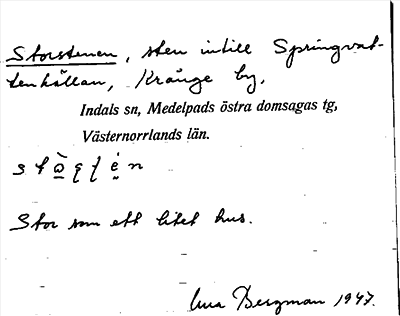 Storstenen, sten intill Springvat-
tenkällan, Kränge by,
Indals sn, Medelpads östra domsagas tg,
Västernorrlands län.
Stor som ett litet hus.
Bergman 1947.